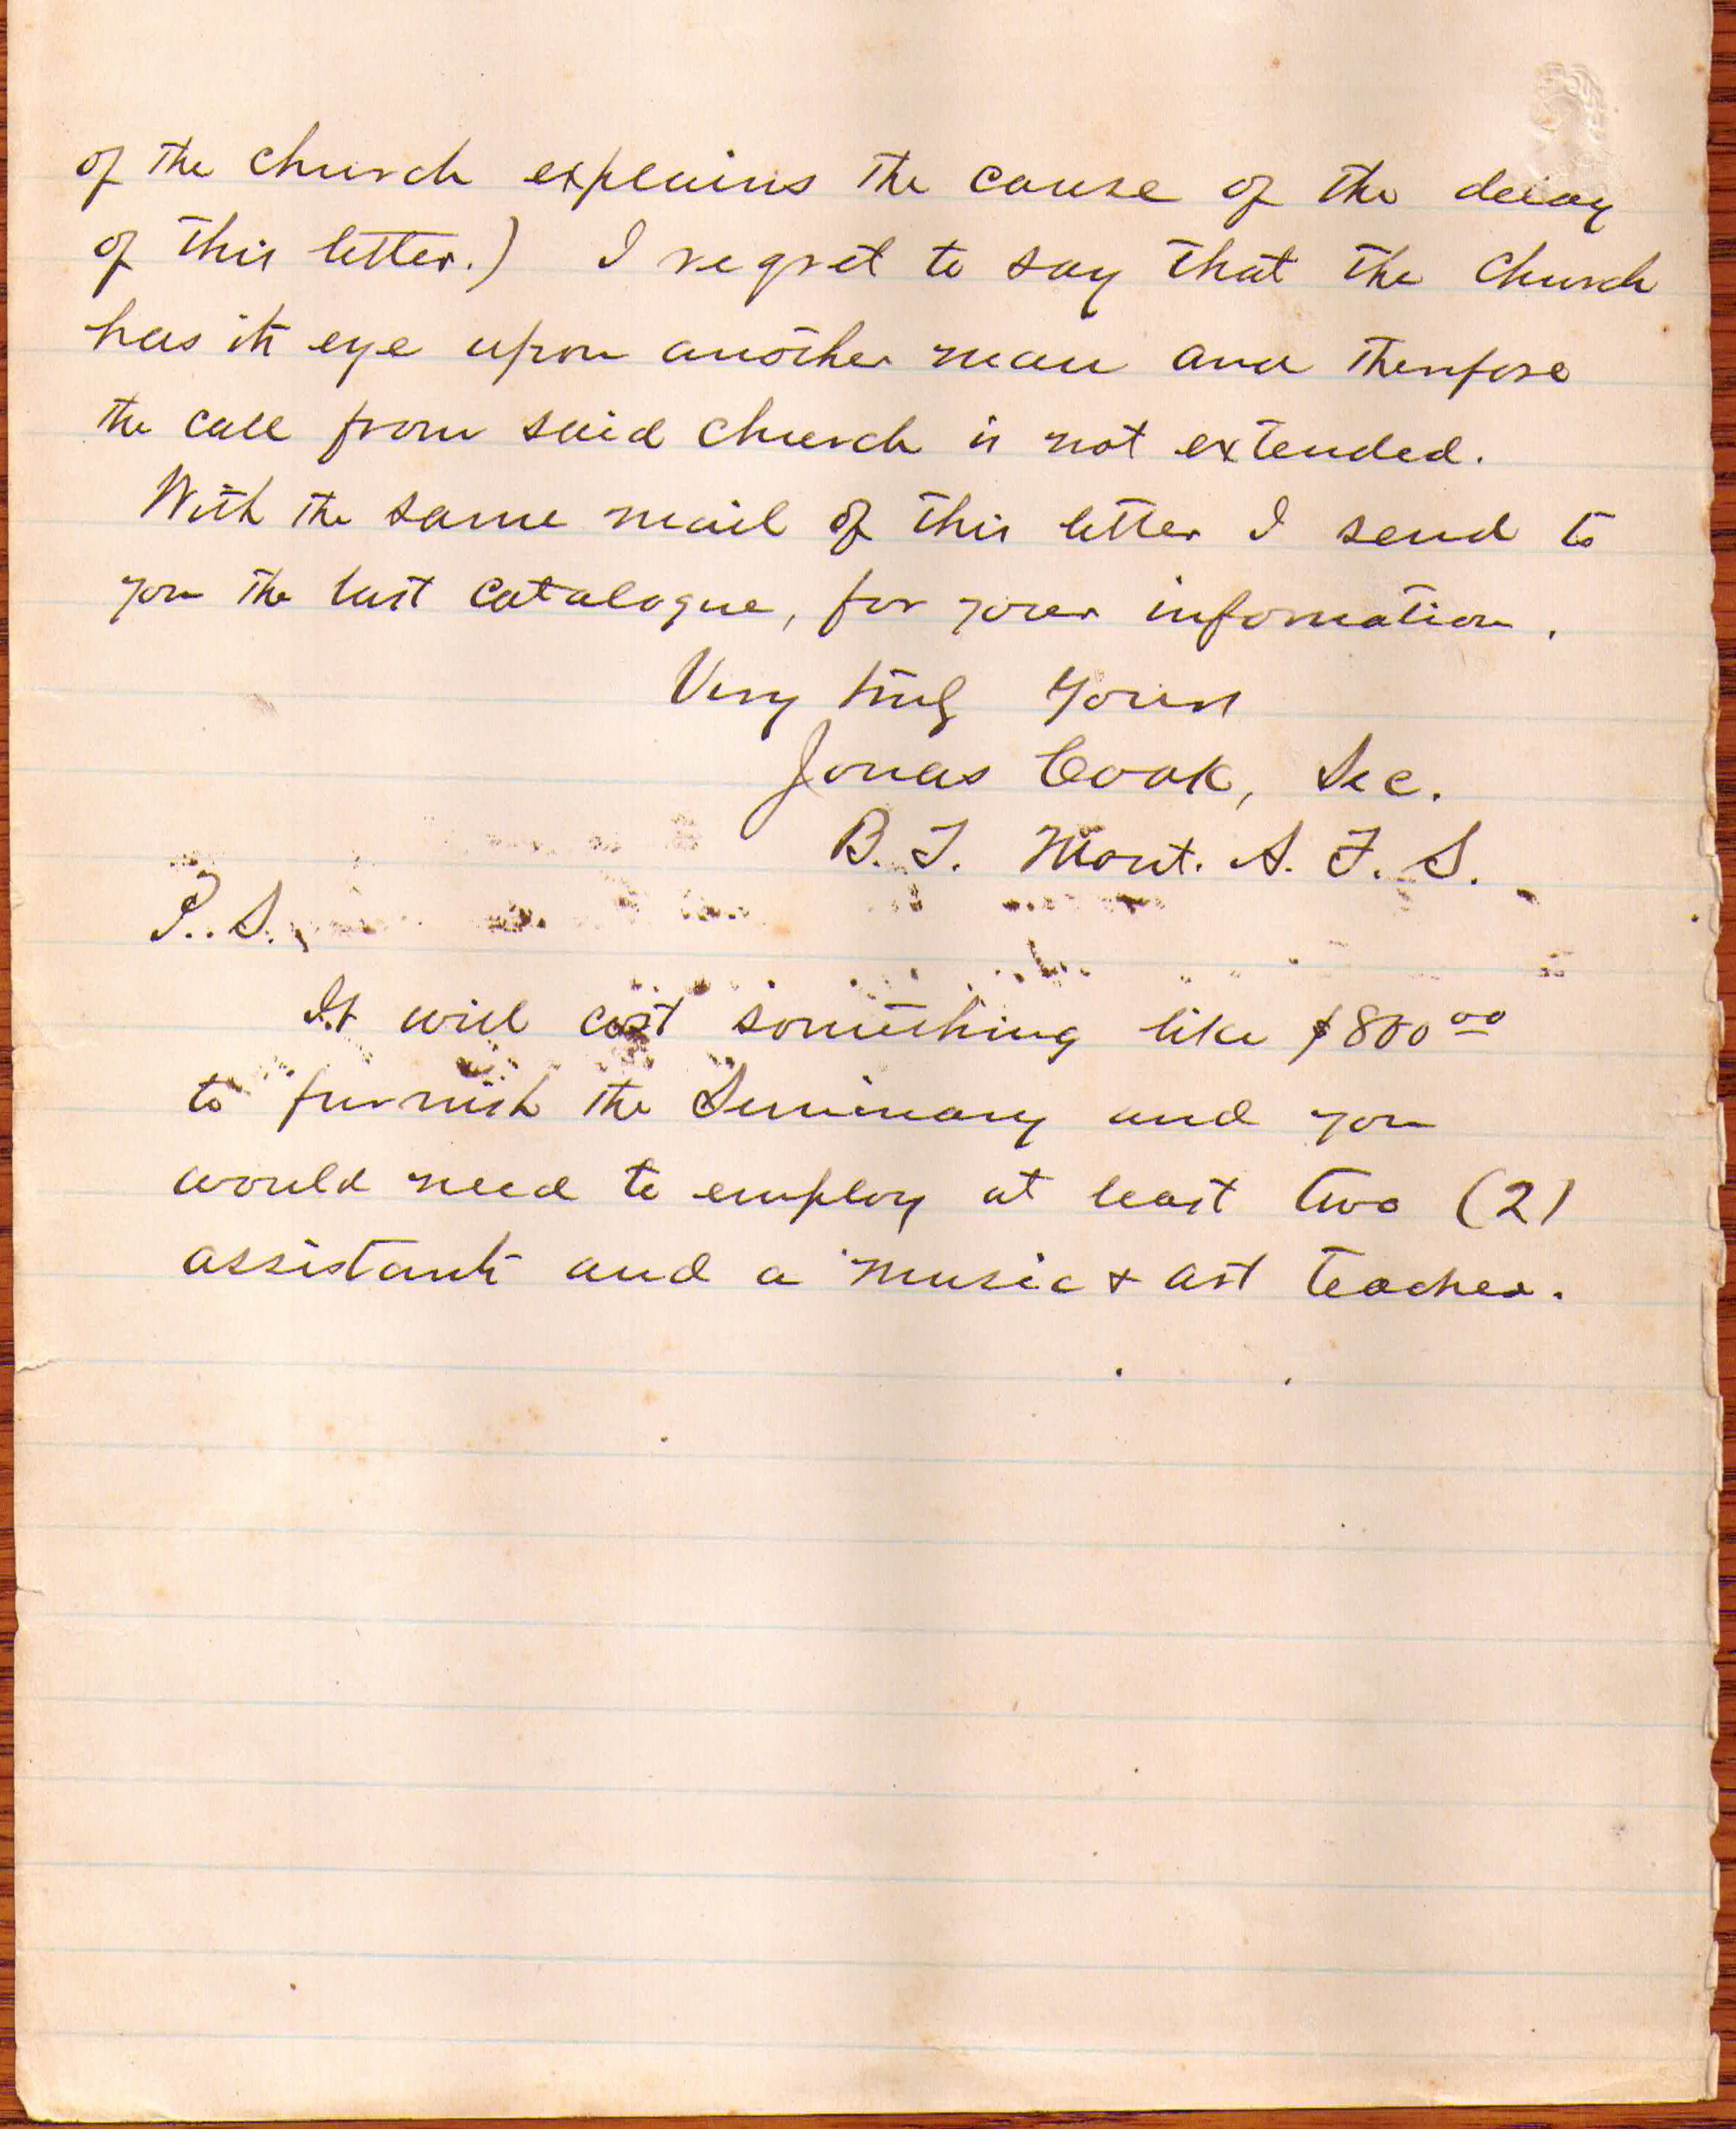 of the church explains the cause of the delay
of this letter.) I regret to say that the church
has its eye upon another man and therefore
the call from said church is not extended.
With the same mail of this letter I send to
you the last catalogue, for your infomation.
Very truly yours
Jonas Cook, Sec.
B. T. Mont. A. F. S.
P.S.,
It will cost something like $800 00
to furnish the Seminary and you
would need to employ at least two (2)
assistants and a music & art teacher.